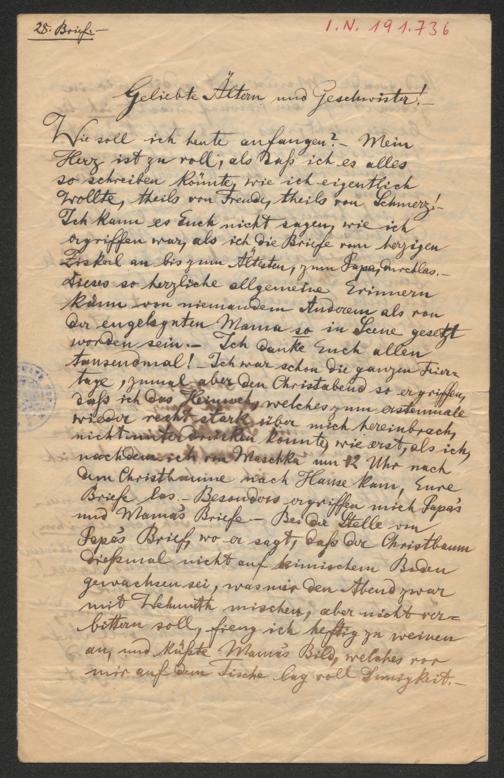 28. Brief.–
I. N. 191.736
Geliebte Ältern und Geschwister!–
Wie soll ich heute anfangen?– Mein
Herz ist zu voll, als daß ich es alles
so schreiben könnte, wie ich eigentlich
wollte, theils von Freude, theils von Schmerz!–
Ich kann es Euch nicht sagen, wie ich
ergriffen war, als ich die Briefe vom herzigen
an bis zum Ältesten, zum Papa, durchlas.–
Dieses so herzliche allgemeine Erinnern
kann von niemandem Anderem als von
der engelsguten Mama so in Scene gesetzt
worden sein.– Ich danke Euch allen
tausendmal!– Ich war schon die ganzen Feier-
tage, zumal aber den Christabend so ergriffen,
daß ich das Heimweh, welches zum erstenmale
wieder recht stark über mich hereinbrach,
nicht unterdrücken konnte, wie erst, als ich,
nachdem ich von um 12 Uhr nach
dem Christbaume nach Hause kam, Eure
Briefe las.– Besonders ergriffen mich Papa's
und Mama's Briefe.– Bei der Stelle von
Papa's Brief, wo er sagt, daß der Christbaum
dießmal nicht auf heimischem Boden
gewachsen sei, was mir den Abend zwar
mit Wehmuth mischen, aber nicht ver-
bittern soll, fieng ich heftig zu weinen
an, und küßte Mama's Bild, welches vor
mir auf dem Tische lag voll Innigkeit.–